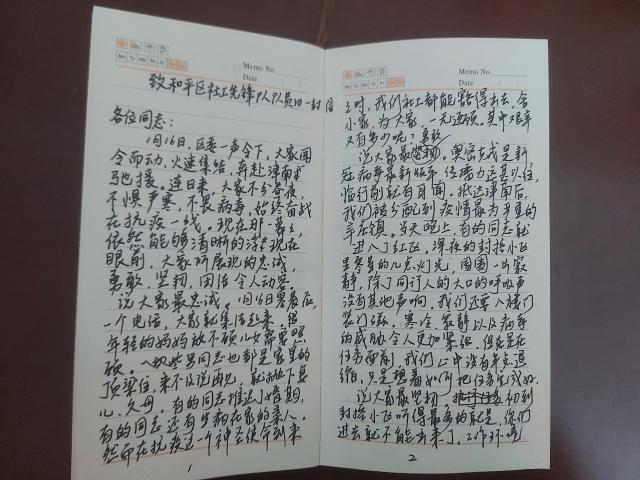 Memo No.
Mo Tu We Th Fr Sa Su
Date / /
致和平区社工先锋队队员的一封信
各位同志：
1月16日，区委一声令下，大家闻
令而动，火速集结，奔赴津南
驰援。连日来，大家不分昼夜，
不惧严寒，不畏病毒，始终奋战
在抗疫一线。现在那一幕幕
依然能够清晰的浮现在
眼前，大家所展现的忠诚、
勇敢、坚韧、团结令人动容。
说大家最忠诚。1月16日寒夜
一个电话，大家就集结起来，
年轻的妈妈放不顾儿女需要照
顾。一些男同志也都是家里的
顶梁柱，来不及说再见，就抛下妻
儿、父母。有的同志推迟了婚期，
有的同志还有生病在家的亲人。
然而在抗疫这一个神圣使命到来
1
Memo No.
Mo Tu We Th Fr Sa Su
Date / /
之时，我们社工都能豁得出去，舍
小家，为大家，一无返顾。其中艰辛
又有多少呢？
说大家最勇敢。奥密克戎是新
冠病毒最新版本，传播力远甚以往，
临行前就有耳闻。抵达津南后，
我们被分配到疫情最为严重的
辛庄镇。当天晚上，有的同志就
进入了红区，深夜的封控小区
星星的几点灯光，周围一片寂
静，除了同行人的大口的呼吸声
没有其他声响，我们还要入楼门
装门磁。寒冷、寂静以及病毒
的威胁令人更加紧张，但是在
任务面前，我们心中没有半点退
缩，只是想着如何把任务完成好。
说大家最坚韧。初到
封控小区听得最多的就是，你们
进去就不能出来了，工作环境
2